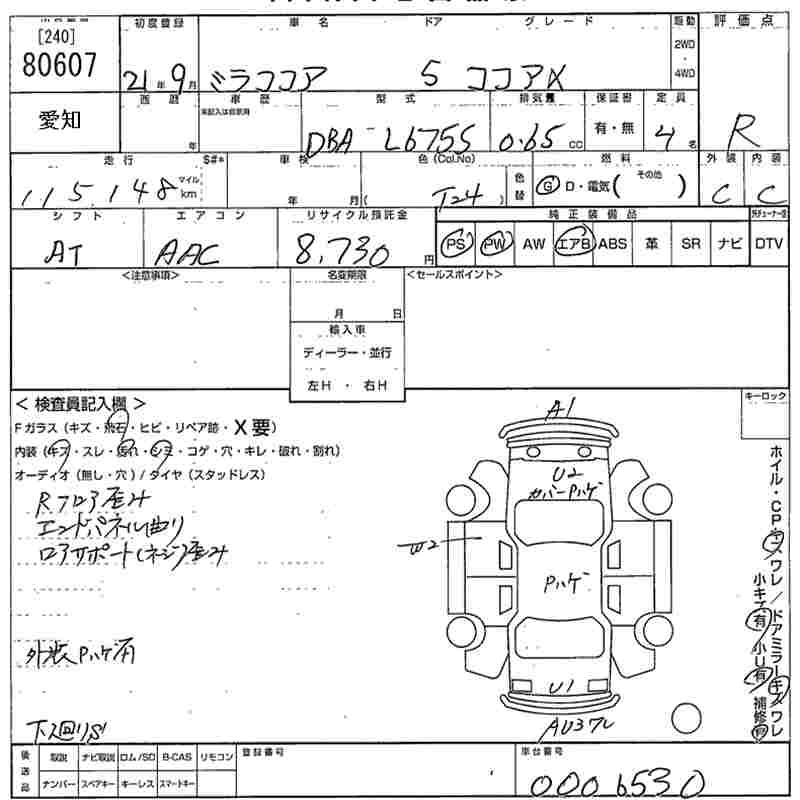 [240]
80607
愛知
初度登録 車名 ドア グレード 駆動 評価点
21年9月 ミラココア 5 ココアX 2WD・4WD
西暦 車歴 型式 排気量 保証書 定員
未記入は自家用
年 DBA L675S 0.65cc 有・無 4名 R
走行 S#* 車検 色(Col.No) 色替 燃料 外装 内装
115,148 マイル km 年 月 ( T24 ) G D・電気( その他 ) C C
シフト エアコン リサイクル預託金 純正装備品
AT AAC 8,730円 PS PW AW エアB ABS 革 SR ナビ DTV
<注意事項> 名変期限 <セールスポイント>
月 日
輸入車
ディーラー・並行
左H ・ 右H
<検査員記入欄> キーロック
Fガラス(キズ・飛石・ヒビ・リペア跡・X要)
内装(キズ・スレ・汚れ・シミ・コゲ・穴・キレ・破れ・割れ)
オーディオ(無し・穴)/タイヤ(スタッドレス)
Rフロア歪み
エンドパネル曲り
ロアサポート(ネジ)歪み
外装Pハゲ有
下廻りS
A1
U2
カバーPハゲ
W2
Pハゲ
U1
AU3ワレ
ホイル・CPキズワレ/ドアミラーキズワレ
小キズ有 小U有 補修有
後送品 取説 ナビ取説 ロム/SD B-CAS リモコン 登録番号 車台番号
ナンバー スペアキー キーレス スマートキー 0006530